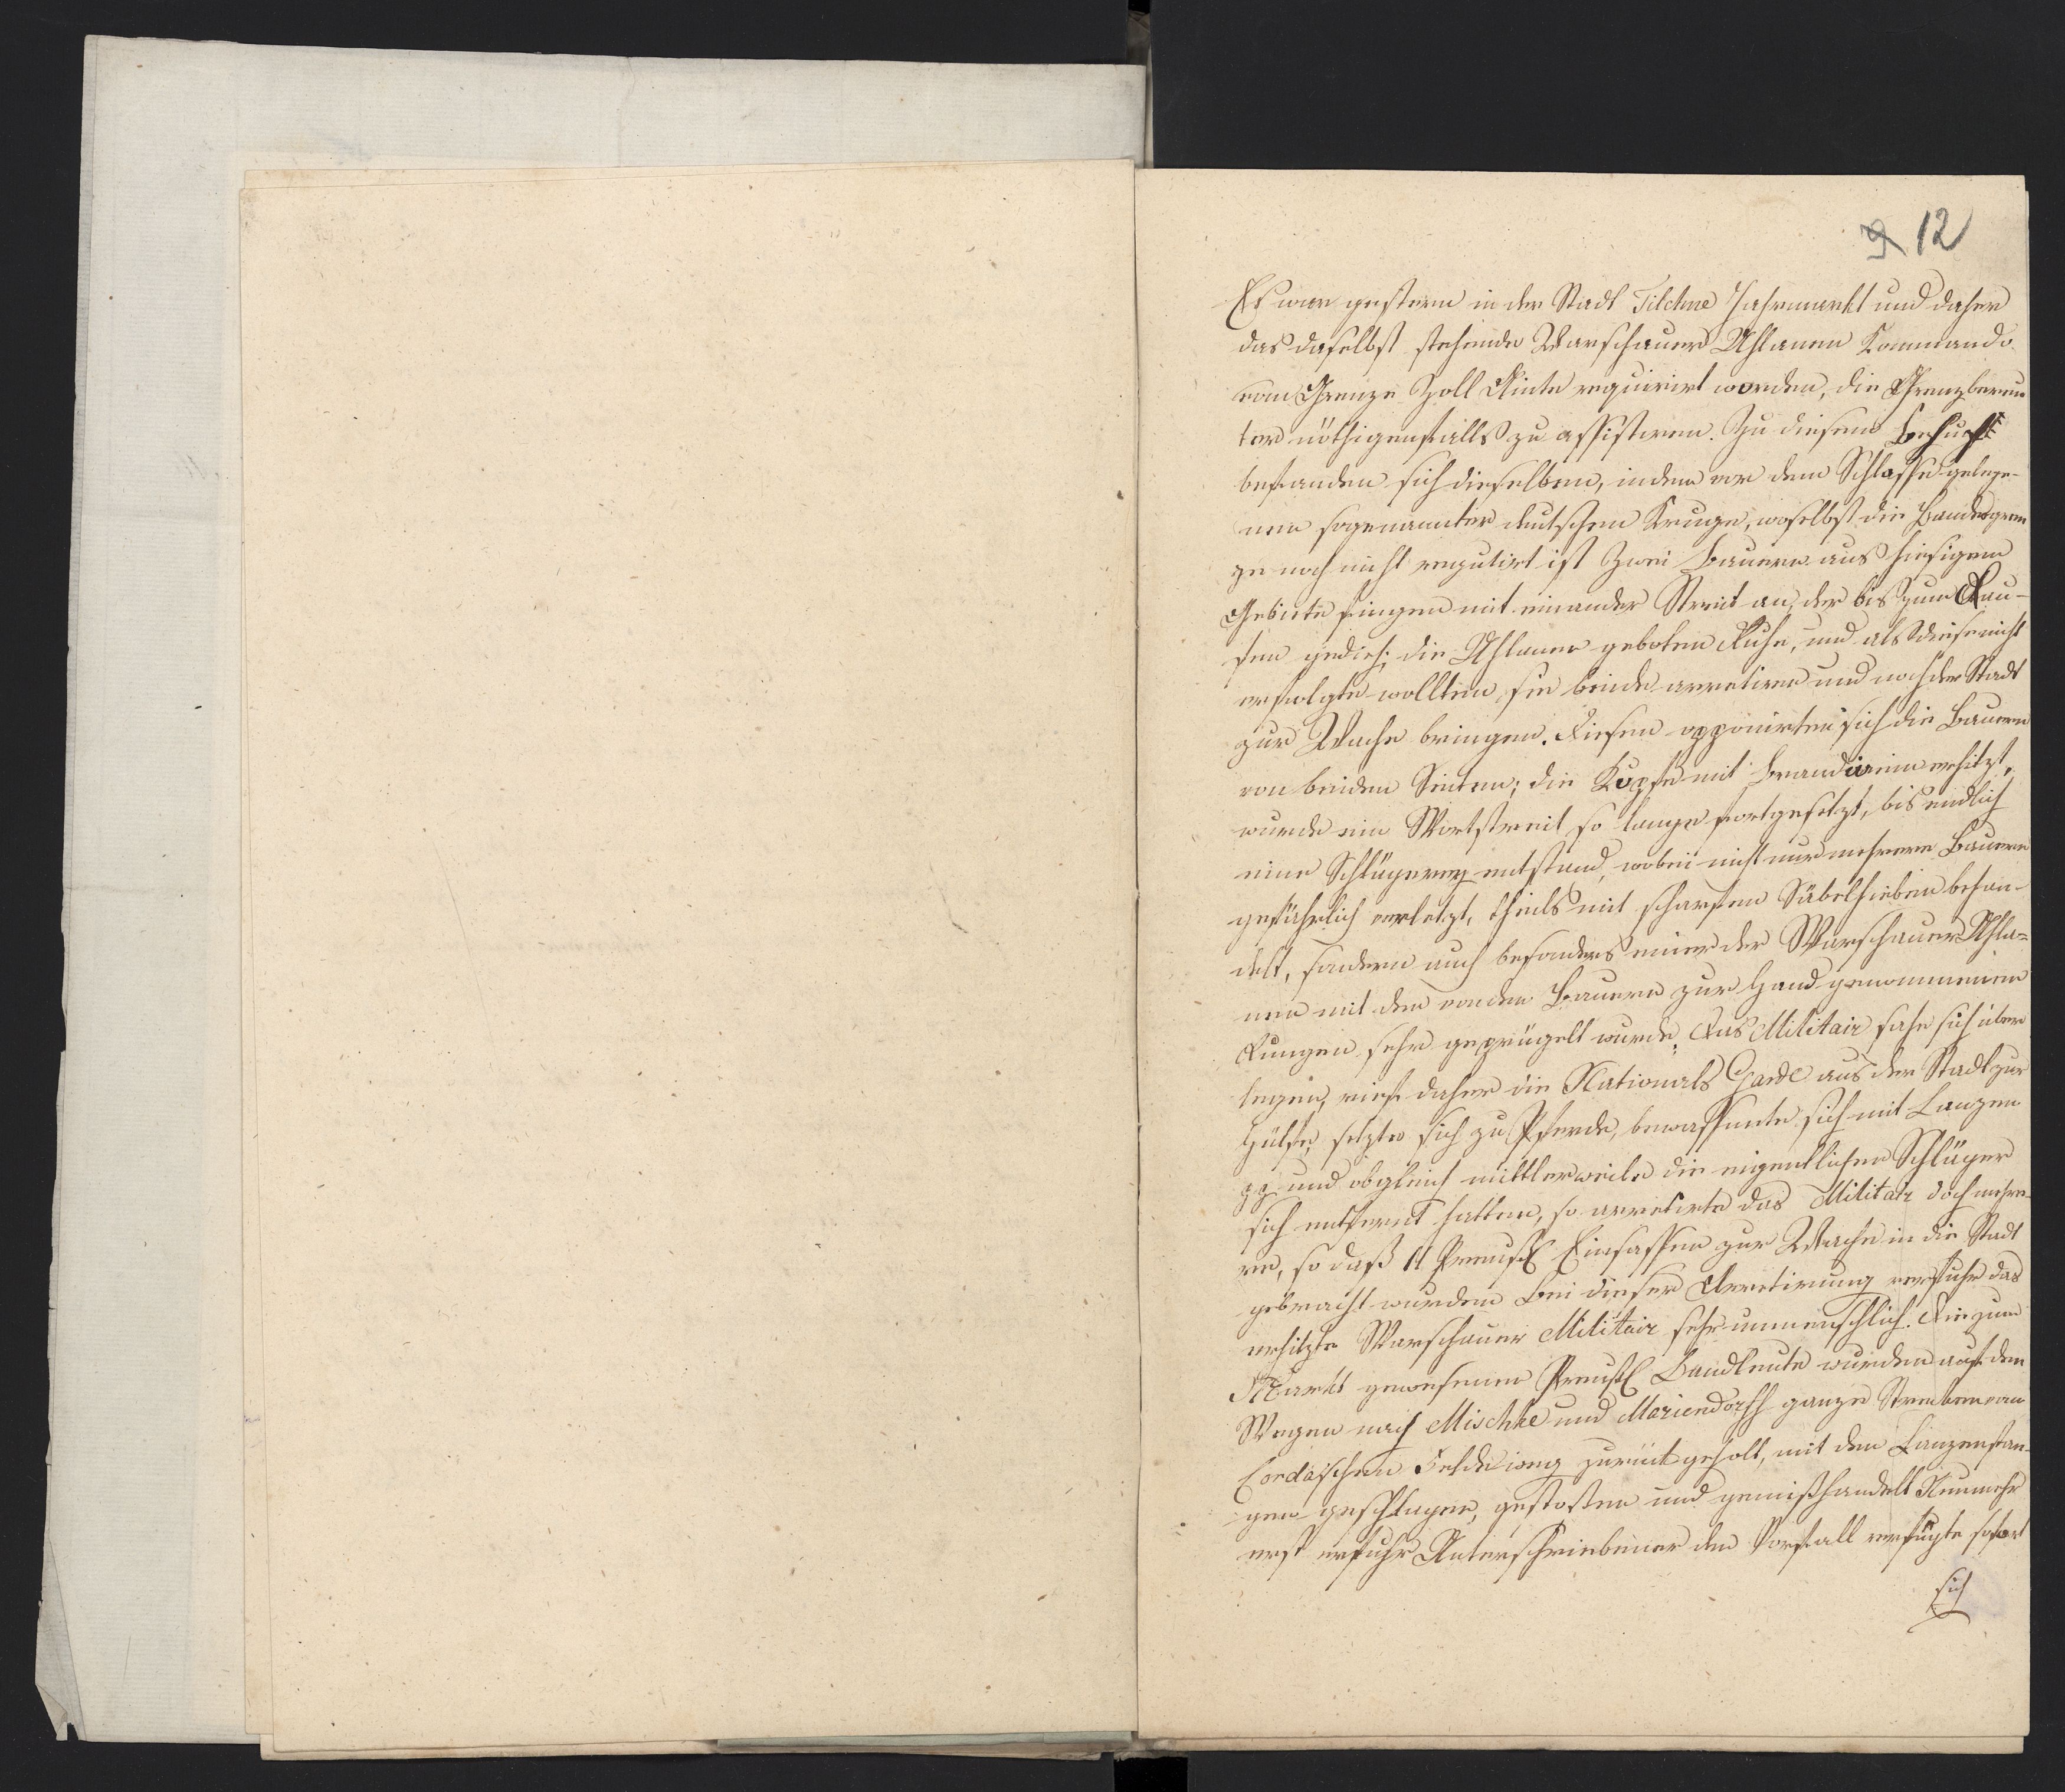 9 12
Es war gestern in der Stadt Filehne Jahrmarkt und daher
das daselbst stehende Warschauer Uhlanen Kommando
vom Grenze Zoll Amte requirirt worden, die Grenzbereu
ter nöthigenfalls zu assistiren. Zu diesem Behuf
befanden sich dieselben, in dem vor dem Schlosse gelege-
nen sogenannter deutschen Kruge, woselbst die Landesgren
ze noch nicht regulirt ist Zwei Bauern aus hiesigem
Gebiete fingen mit einander Streit an, der bis zum Rau-
fen gedieh; die Uhlanen geboten Ruhe, und als diese nicht
erfolgte wollten sie beide arretiren und nach der Stadt
zur Wache bringen. Diesem opponirten sich die Bauern
von beiden Seiten; die Köpfe mit Brandwein erhitzt,
wurde ein Wortstreit so lange fortgesetzt, bis endlich
eine Schlägerey entstand, wobei nicht nur mehrere Bauern
gefährlich verletzt, theils mit scharfen Säbelhieben behan-
delt, sondern auch besonders einer der Warschauer Uhla=
nen mit den von den Bauern zur Hand genommenen
Rungen sehr geprügelt wurde. Das Militair sahe sich über
legen, rief daher die Nationals Garde aus der Stadt zur
Hülfe, setzte sich zu Pferde, bewaffnete sich mit Lanzen
pp und obgleich mittlerweile die eigentlichen Schläger
sich entfernt hatten, so arretirte das Militair doch mehre-
re, so daß 11 Preuß Einsassen zur Wache in die Stadt
gebracht wurden Bei dieser Arretirung verfuhr das
erhitzte Warschauer Militair sehr unmenschlich. Die zum
Markt gewesenen Preuß Landleute wurden auf den
Wegen nach Mischke und Mariendorff ganze Strecken vom
Cordaischen Felde weg zurückgeholt, mit den Lanzenstan-
gen geschlagen, gestoßen und gemißhandelt Nunmehr
erst erfuhr Unterschriebener den Vorfall verfügte sofort
sich